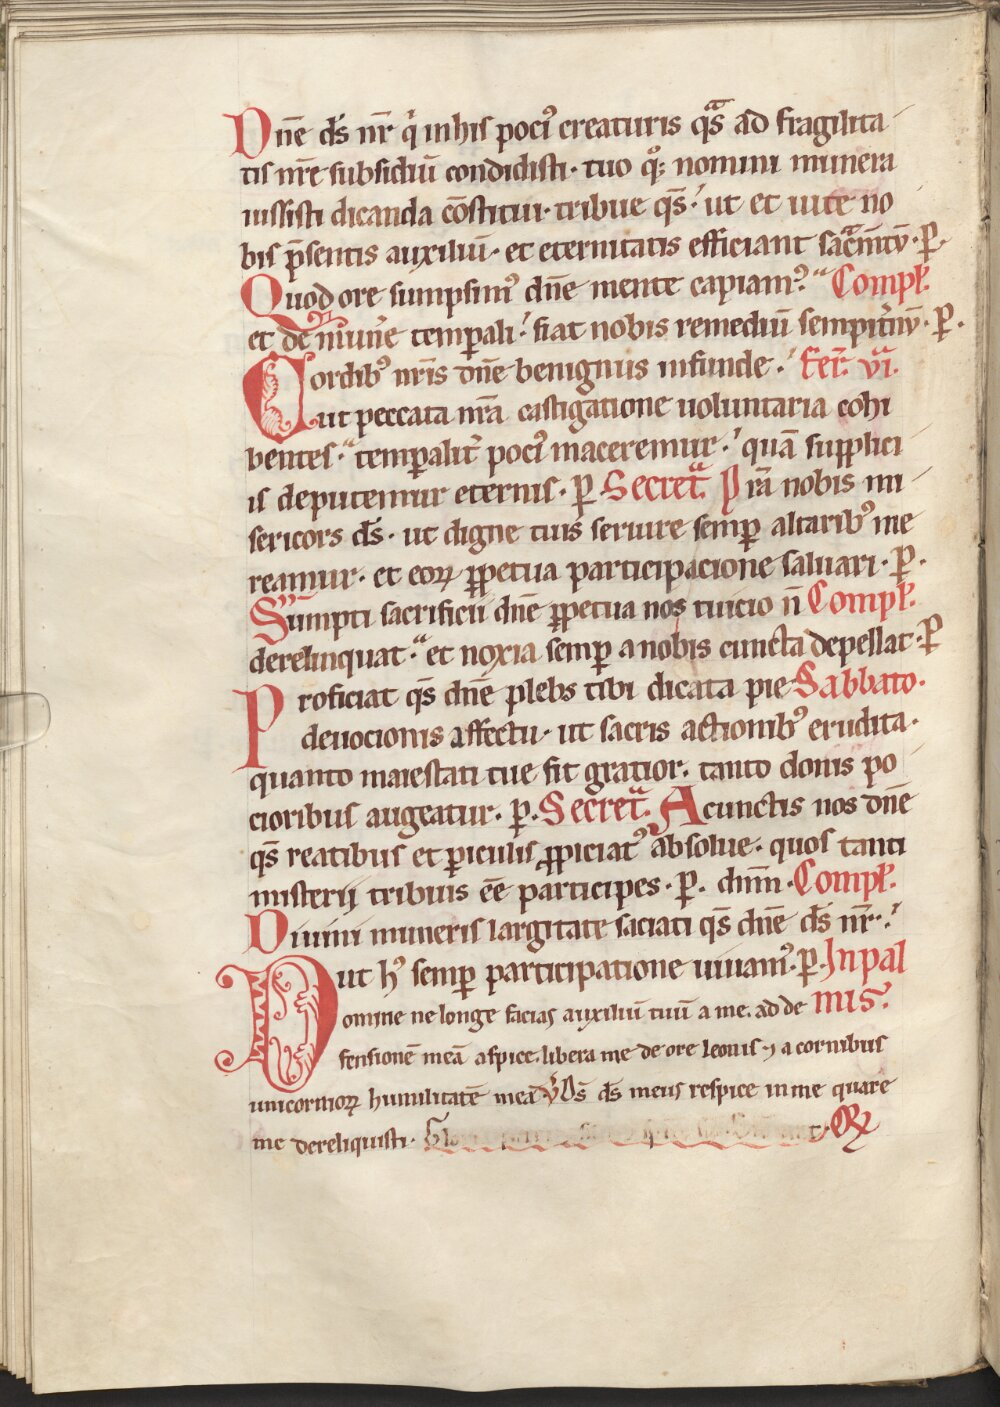 Dn̄e ds̄ nr̄ q̇ in his poci᷒ creaturis qͣs ad fragilita
tis nr̄e subsidiū condidisti· tuo qͦꝫ nomini munera
iussisti dicanda cōstitui· tribue qs̄· ut et uite no
bis p̄sentis auxiliū· et eternitatis efficiant sacͣm̄tū· ꝑ·
Quod ore sumpsim᷒ dn̄e mente capiam᷒· Compl̄.
et de mun̄e temꝑali· fiat nobis remediū sempit̄nū· ꝑ·
Cordib᷒ nr̄is dn̄e benignus infunde· fer̄· vi·
ut peccata nr̄a castigatione uoluntaria cohi
bentes· temꝑalit̄ poci᷒ maceremur· quā supplici
is deputemur eternis· ꝑ Secret̄ P̄ra nobis mi
sericors ds̄· ut digne tuis seruire semꝑ altarib᷒ me
reamur· et eoꝝ ꝑpetua participacione saluari· ꝑ·
Sumpti sacrificii dn̄e ꝑpetua nos tuicio n̄ Compl̄.
derelinquat· et noxia semꝑ a nobis cuncta depellat· ꝑ
Proficiat qs̄ dn̄e plebs tibi dicata pie Sabbato·
deuocionis affectu· ut sacris actionib᷒ erudita·
quanto maiestati tue fit gratior· tanto donis po
cioribus augeatur· ꝑ· Secret̄ A cunctis nos dn̄e
qs̄ reatibus et ꝑiculis ꝓpiciat᷒ absolue· quos tanti
misterij tribuis ēe participes· ꝑ· dnm̄· Compl̄.
Diuini muneris largitate saciati qs̄ dn̄e ds̄ nr̄·
ut h᷒ semꝑ participatione uiuam᷒· ꝑ· In pal
Domine ne longe facias auxiliū tuū a me· ad de mis̄·
fensionē meā aspice· libera me de ore leonis· ⁊ a cornibus
unicornioꝝ humilitatē meā V̄ Ds̄ ds̄ meus respice in me quare
me dereliquisti·